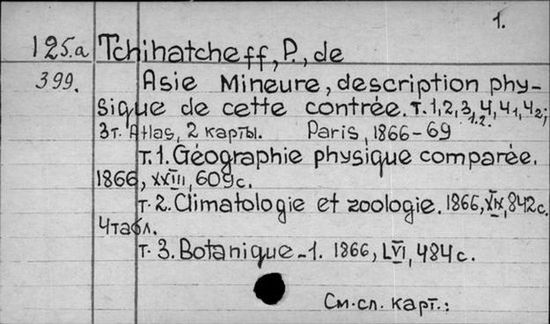 1.
125.a Tchihatcheff, P., de
399. Asie Mineure, description phy-
sique de cette contrée. т. 1, 2, 3 1.2., 4, 4₁, 4₂;
3 т. Atlas, 2 карты. Paris, 1866-69
т. 1. Géographie physique comparée.
1866, XXIII, 609 с.
т. 2. Climatologie et zoologie. 1866, XIX, 842 с.
4 табл.
т. 3. Botanique - 1. 1866, LVI, 484 с.
См. сл. карт.: